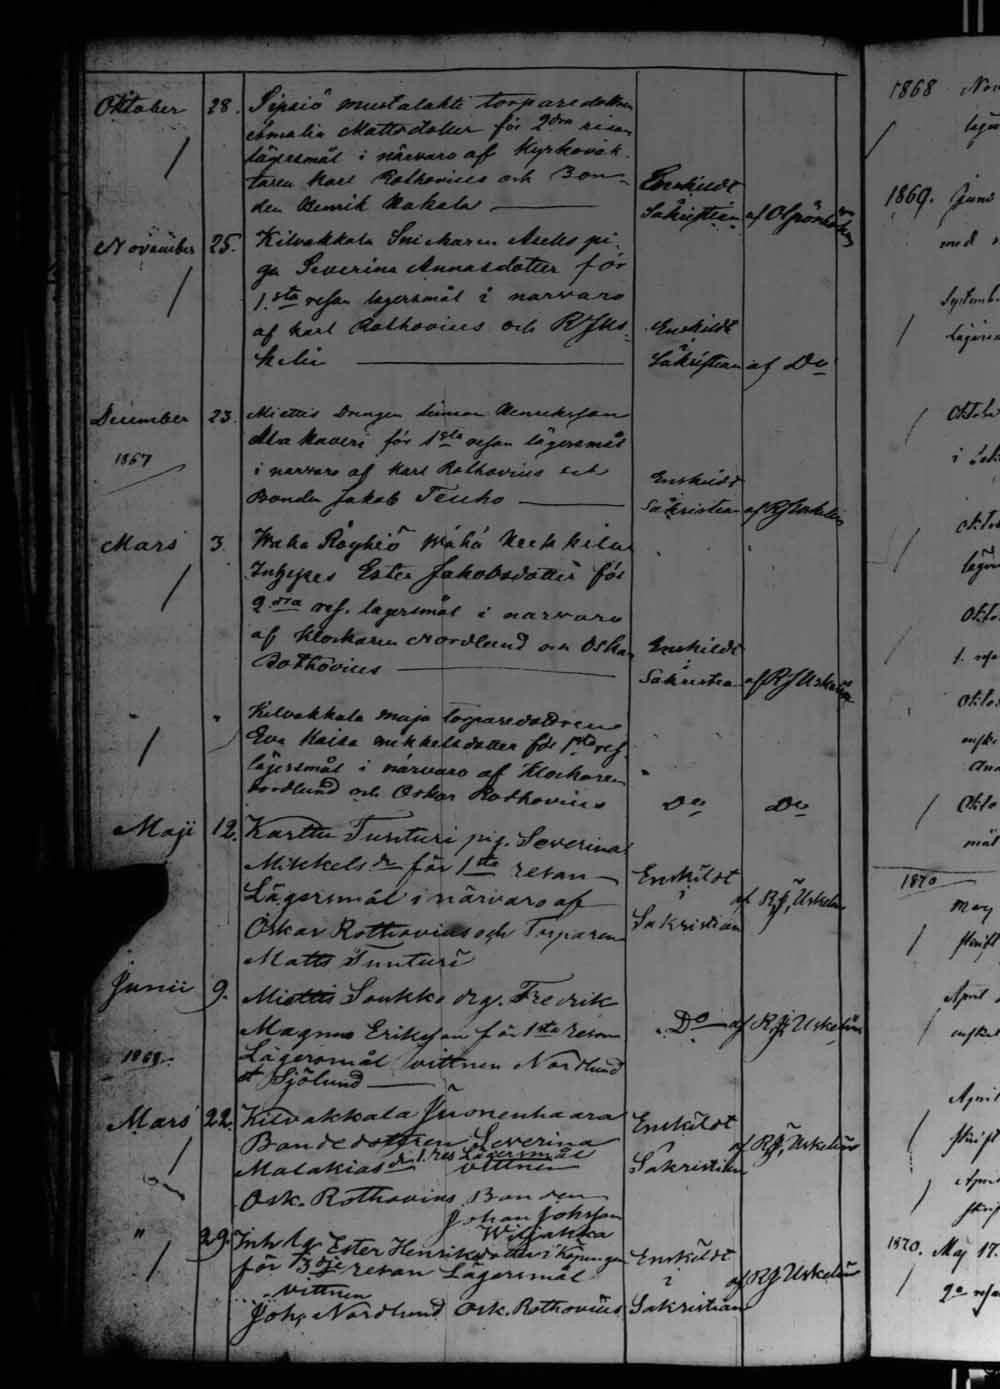 Oktober 28. Sipsiö mustalahti torparedottren
Amalia Mattsdotter för 2dra resan
lägersmål i närvaro af Kyrkovak-
taren Karl Rothovius och Bon-
den Henrik Kakala
Enskildt
Sakristian af
November 25. Kilvakkala Snickaren Axels pi-
ga Severina Annasdotter för
1.sta resan lägersmål i narvaro
af Karl Rothovius och RJUs-
kelin
Enskildt
i
Sakristian af Do
December 23. Miettis Drengen Simon Henriksson
för 1sta resan lägersmål
1867
i narvaro af Karl Rothovius och
Bonden Jakob Teuho
Enskildt
Sakristian af RJUskelin
Mars 3.
Inhyses Ester Jakobsdotter för
2dra res. lagersmål i narvaro
af Klockaren Nordlund och Oskar
Rothovius
Enskildt
i
Sakristian af RJUskelin
" " Kilvakkala maja torparedottren
Eva Kaisa Mikkelsdotter för 1sta res.
lägersmål i närvaro af Klockaren
Nordlund och Oskar Rothovius
Do Do
Maji 12. Karttu Tunturi pig. Severina
Mikkels dr för 1sta resan
Lägersmål i närvaro af
Oskar Rothovius och Torparen
Matts Tunturi
Enskildt
i
Sakristian
af R.J. Uskelin
Junii 9. Miettis Soukko drg. Fredrik
Magnus Eriksson för 1sta resan
Lägersmål vittnen Nordlund
et Sjölund
Do af R.J. Uskelin
1868.
Mars 22. Kilvakkala Juonenhaara
Bondedottren Severina
Malakias dr 1. res Lägersmål
vittnen
Osk. Rothovius Bonden
Johan Johsson
Wiljakka
Enskildt
i
Sakristian
af R.J. Uskelin
" 29. Inh. Ester Henriksdotter i Köpingen
för 3dje resan Lägersmål
vittnen
Joh. Nordlund Osk. Rothovius
Enskildt
i
Sakristian
af RJ Uskelin
1868 Nov
läger
1869. Juni
med
Septemb
Lägers
Oktob
i
Oktob
läger
Okto
1. resa
Oktob
enski
Okto
mål
1870
Maj
skrift
April
enskild
April
skrift
April
skrif
1870. Maj 17.
2a resa